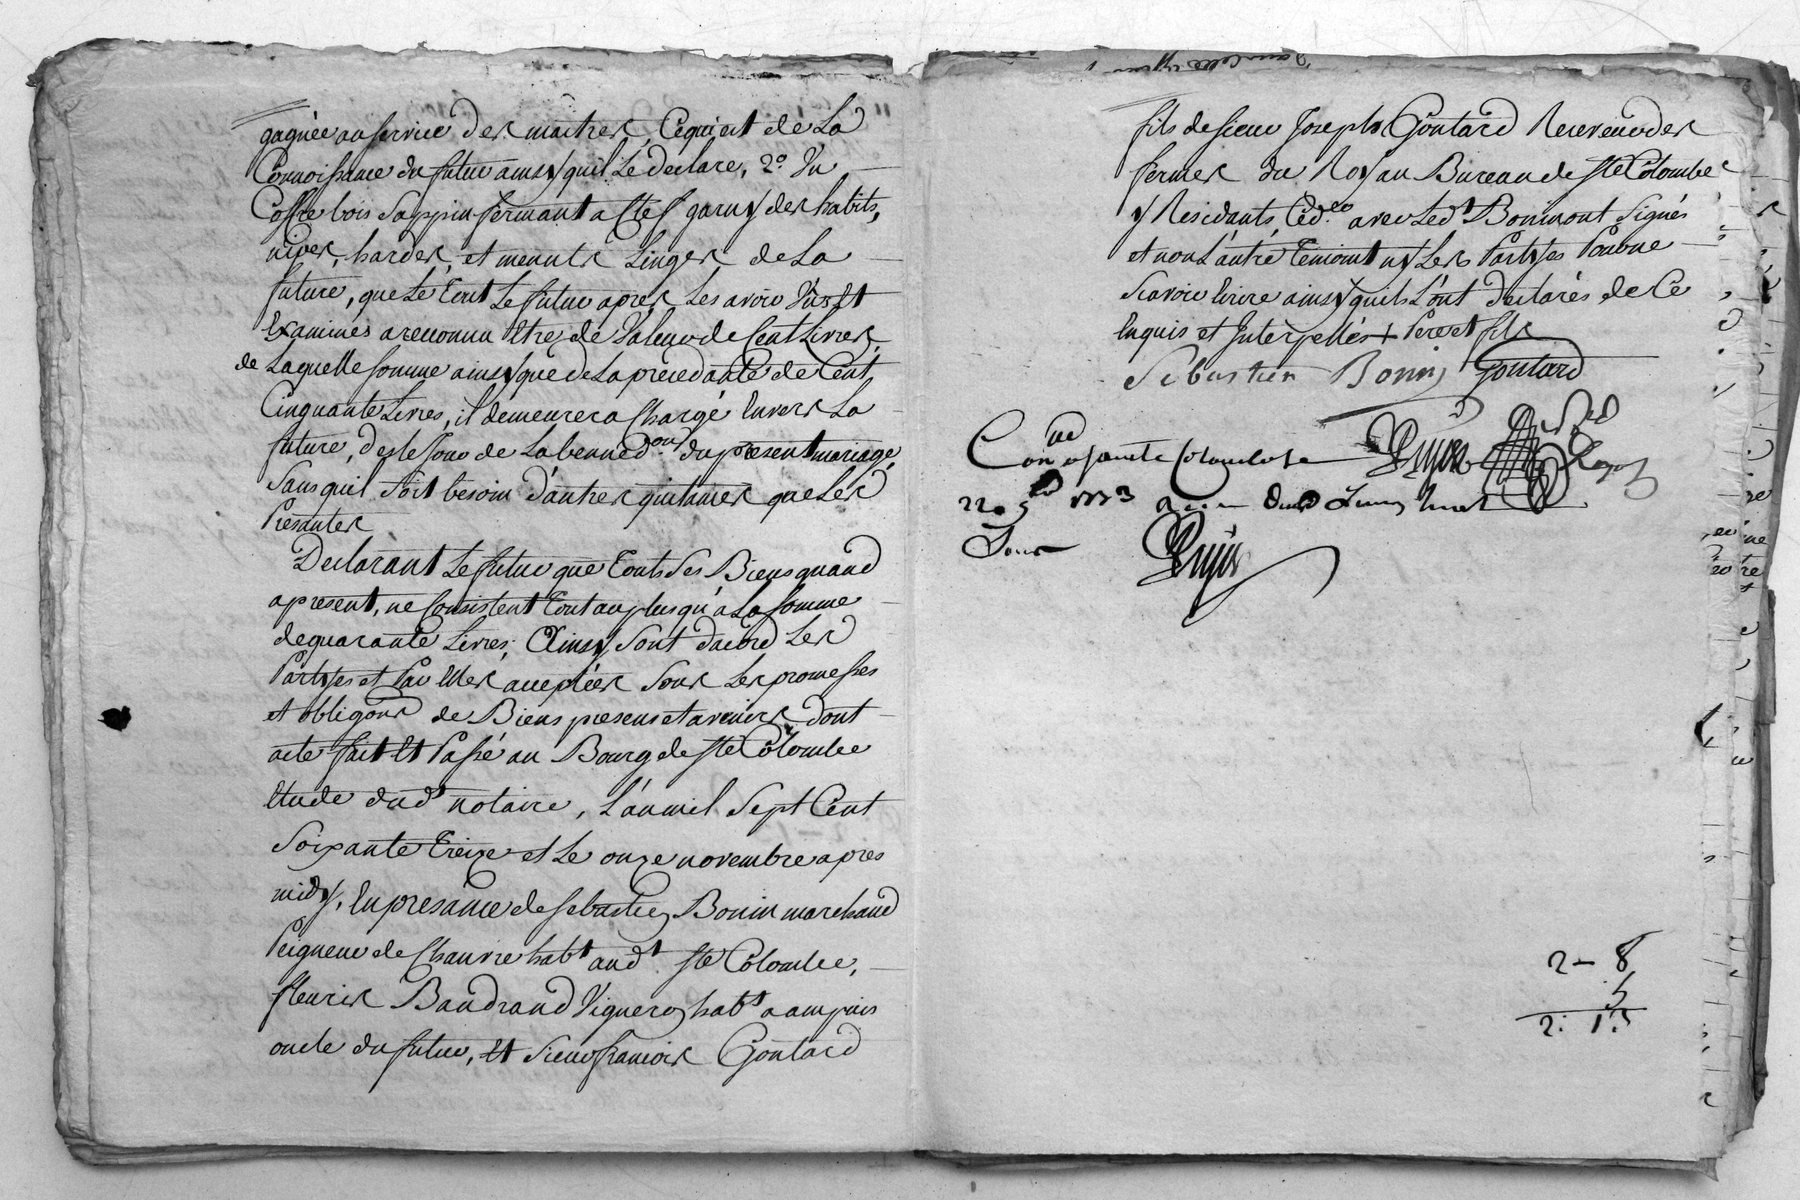 gagnée au service des maitres, Cequi est de La
Connoissance du futur ainsy quil Le declare, 2.o Un
Coffre bois Sappin fermant a Clef garny des habits,
nipes, hardes, et menuts Linges de La
future, que Le tout Le futur apres Les avoir Vus Et
Examinés a reconnu Etre de Valeur de Cent Livres,
de Laquelle somme ainsy que de La precedante de Cent
Cinquante Livres, il demeurera Chargé Envers La
future, des le jour de La bened.on du present mariage,
Sans quil soit besoin d'autres quitances que Les
Presantes
Declarant Le futur que touts ses Biens quand
apresent, ne Consistent tout au plus qu'a La somme
de quarante Livres; Ainsy sont dacord Les
Partyes et Par Elles acceptées sous Les promesses
et obligons de Biens presens et avenirs, dont
acte fait Et Passé au Bourg de Ste Colombe
Etude dudt notaire, L'an mil Sept Cent
Soixante treize et Le onze novembre apres
midy, En presance de Sebastien Bonin marchand
Peigneur de Chanvre habt audt Ste Colombe,
fleuris Baudrand Vigneron habt a ampuis
oncle du futur, Et Sieur francois Goutard
fils de sieur Joseph Goutard Receveur des
fermes du Roy au Bureau de Ste Colombe
y Residants, avec Ledt Bonin ont Signés
et non L'autre temoint ny Les Partyes Pour ne
Scavoir Ecrire ainsy quils L'ont declarés de Ce
Enquis et Interpellés + Pere et fils
Sebastien Bonin Goutard
Con.ue a Sainte Colombe
22 1773
Sous
2 - 8
5
2. 13